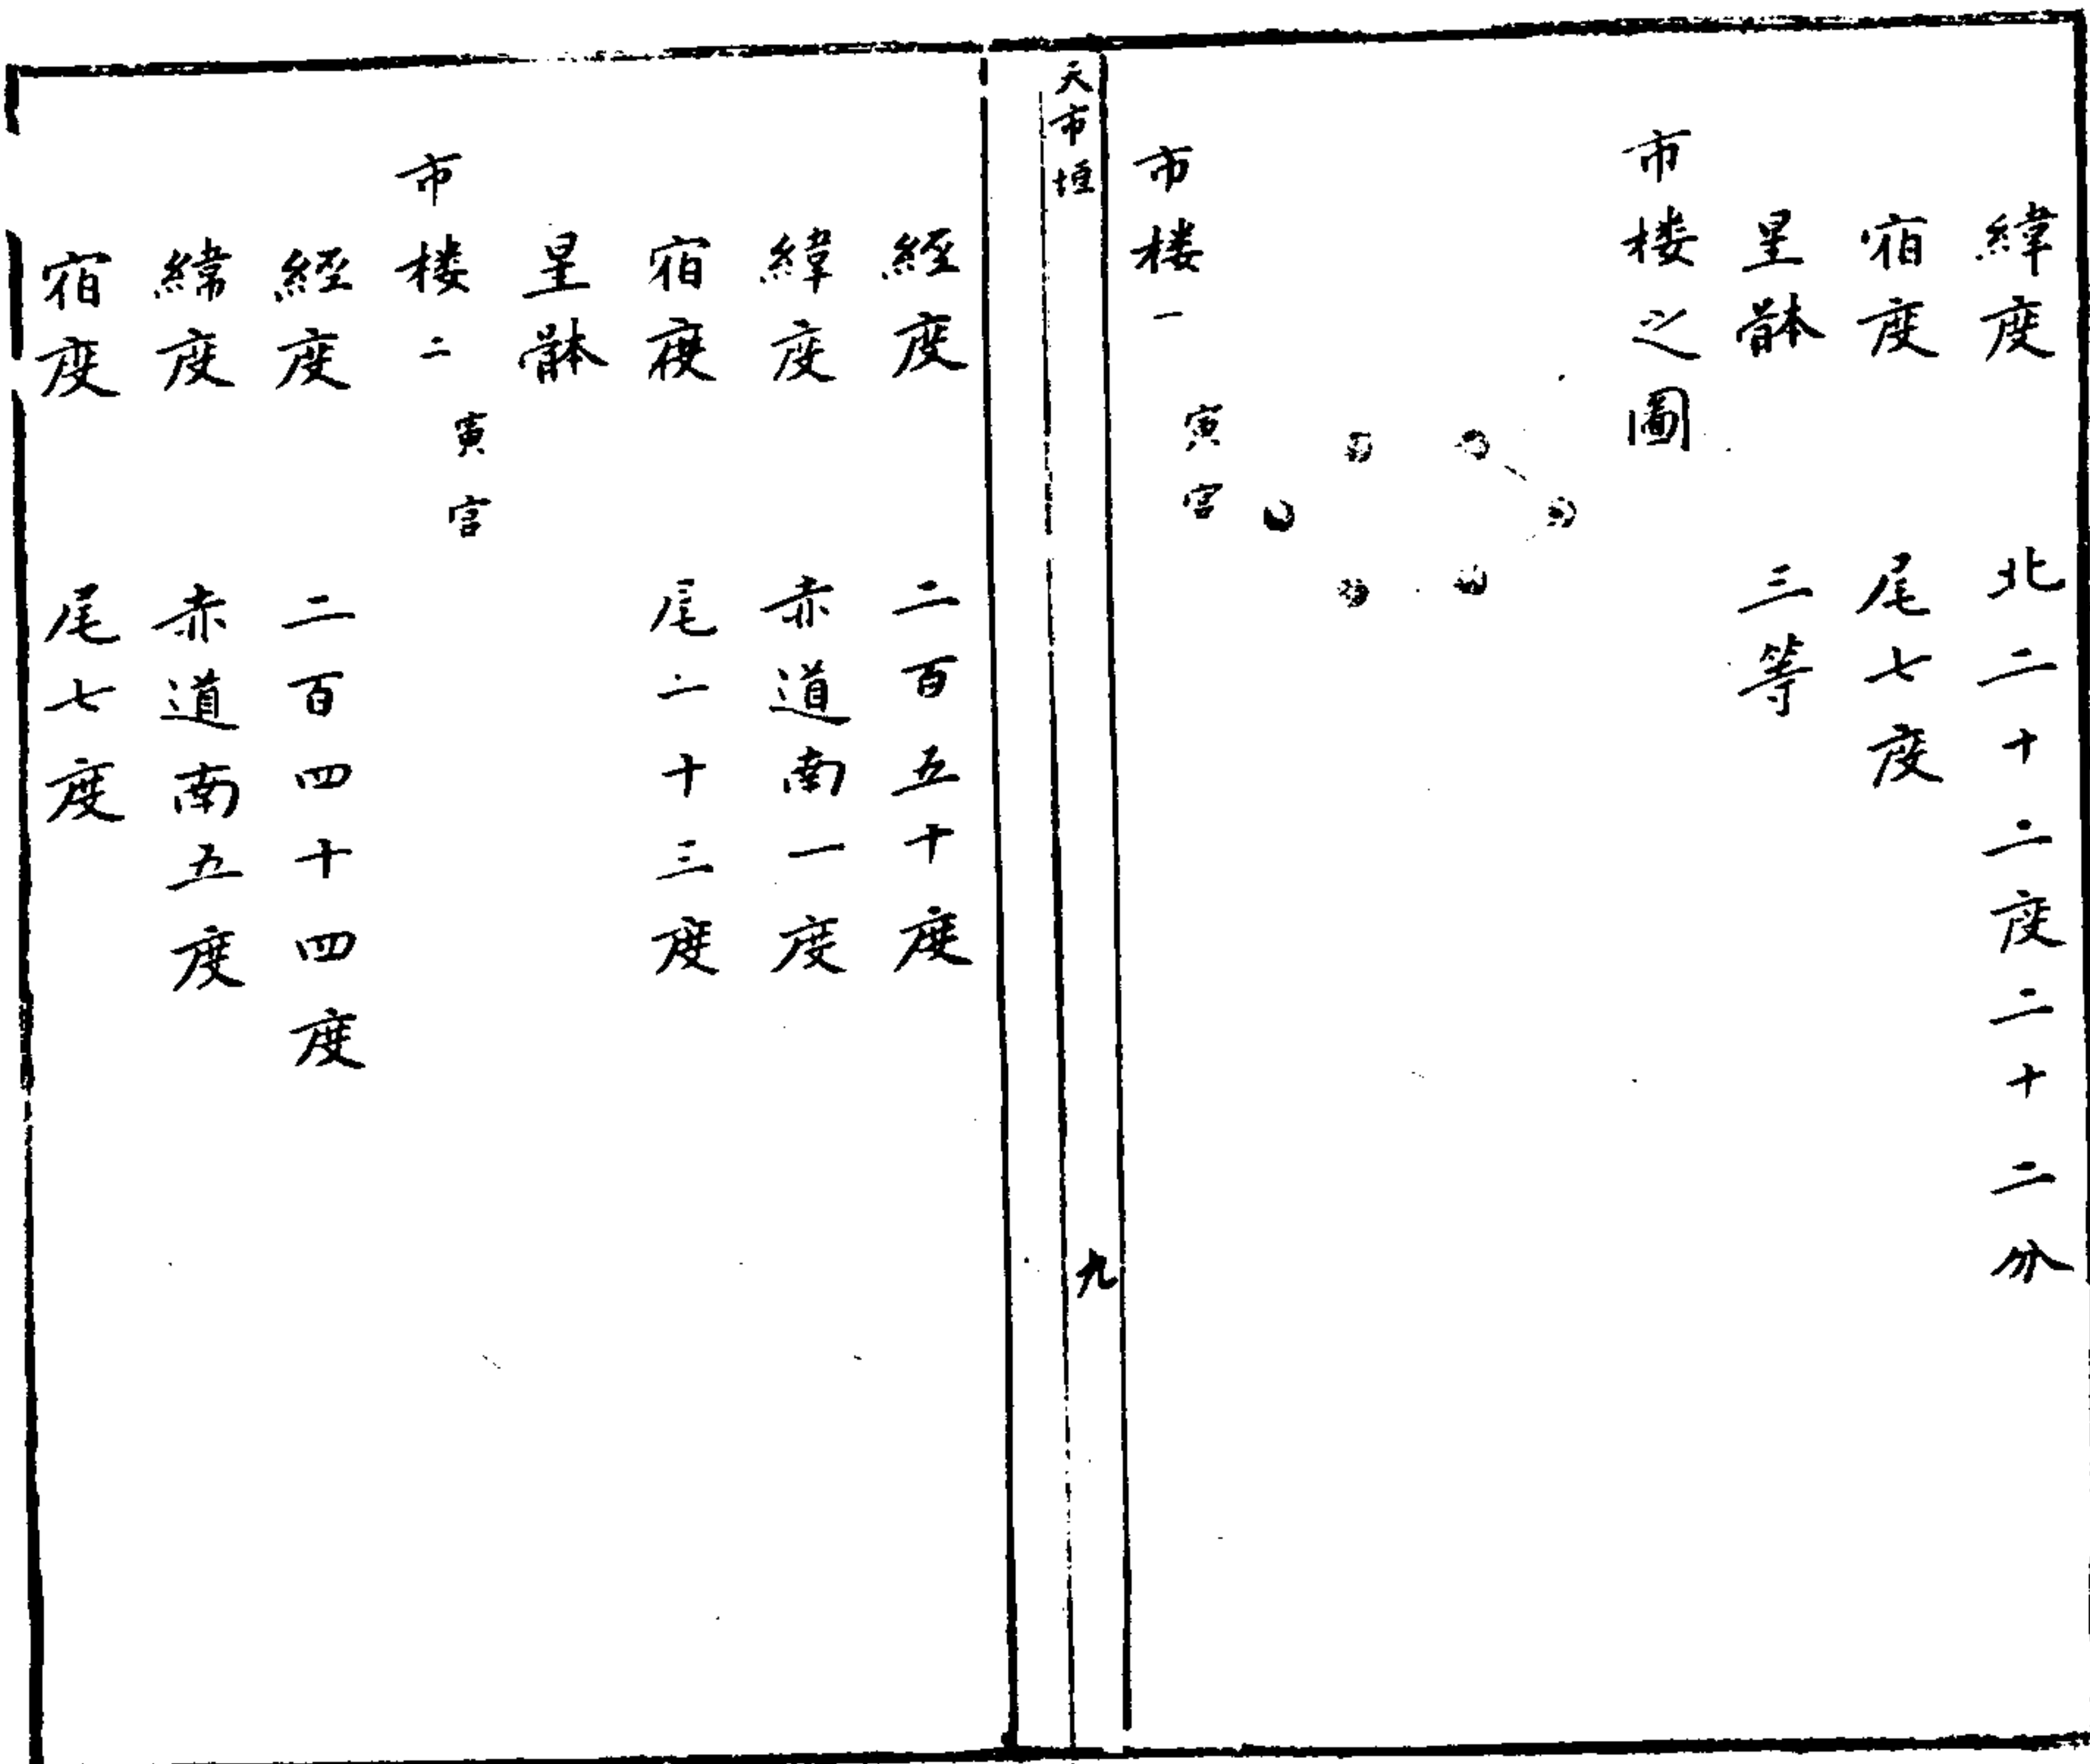 緯度 北二十二度二十二分
宿度 尾七度
星體 三等
市楼之圖
市楼一 寅宮
天市垣 九
經度 二百五十度
緯度 赤道南一度
宿度 尾一十三度
星體
市楼二 寅宮
經度 二百四十四度
緯度 赤道南五度
宿度 尾七度